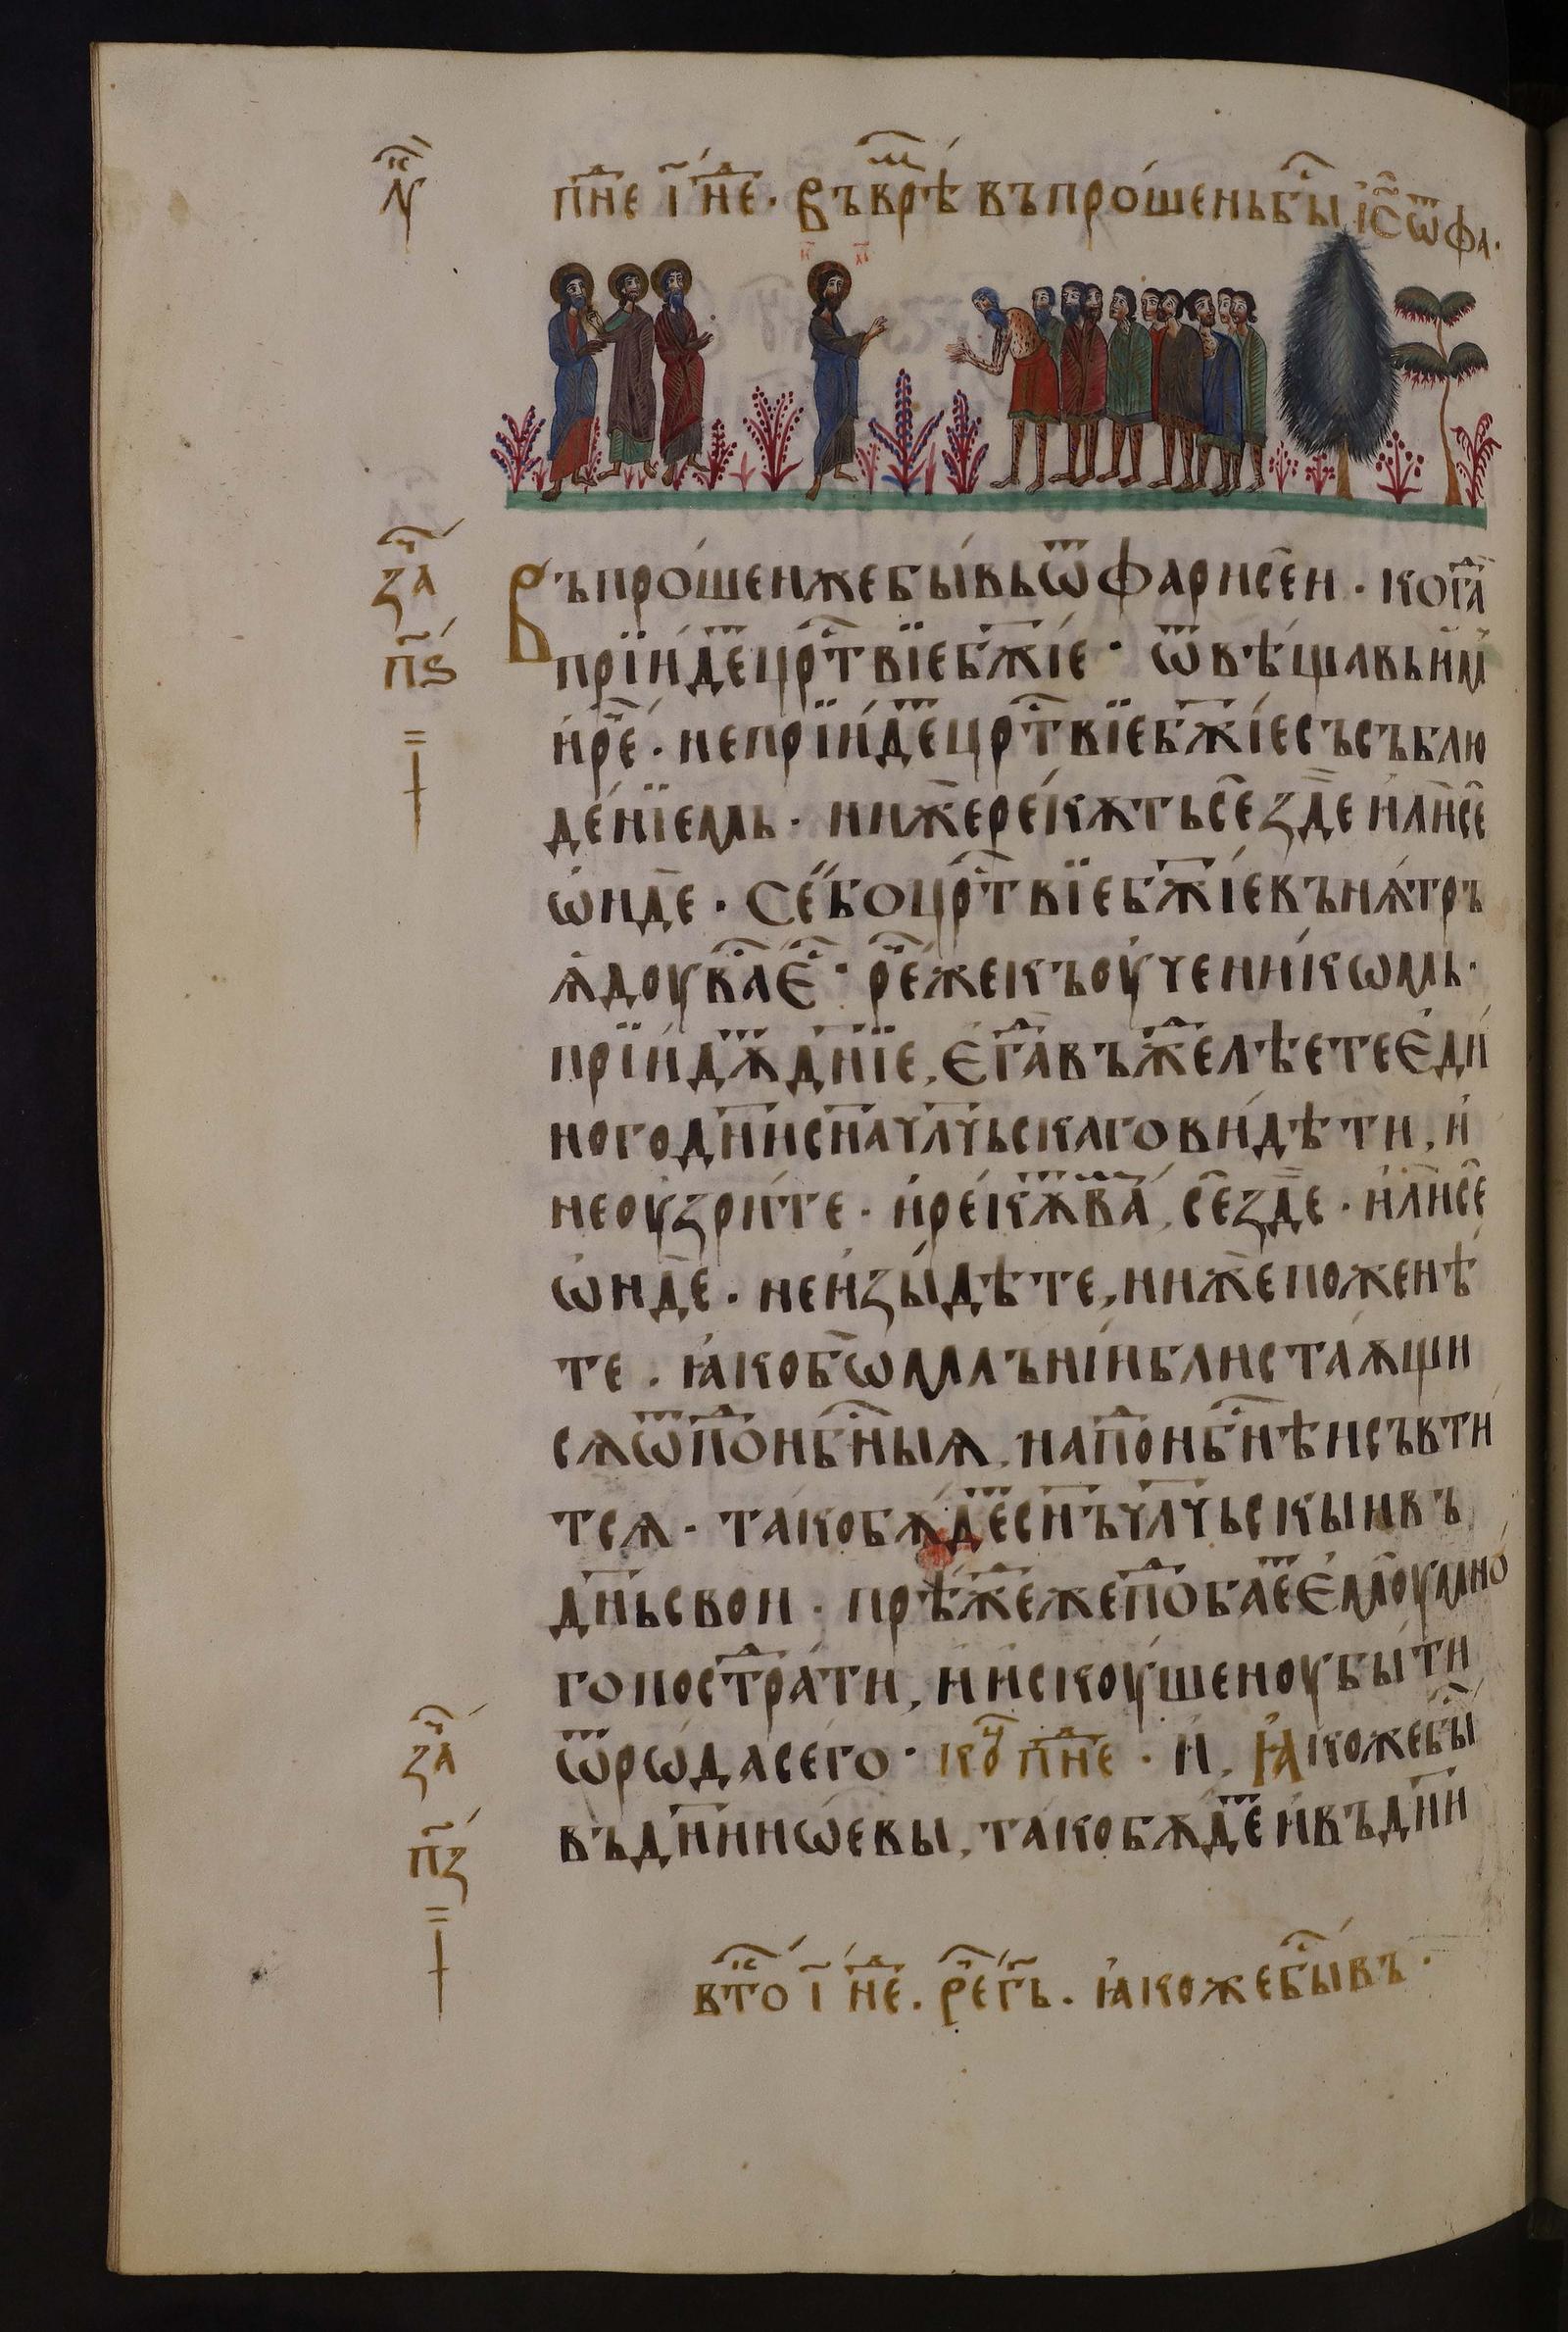 пн҃е і҃ не҃. Въ врѣ́м въпро́шень бы́ і҃с ѿ фа.
за҃ч
Въпро́шен же бы́вь ѿ фарисе́и. когда̀
п҃ѕ
прїи́детⷮ црⷭ҇твїе бж҃їе. ѿвѣ́щавь им
и́ рече́. не прїи́деⷮ црⷭ҇твїе бж҃їе съ съблю
де́нїемь. ни же река́ть се зде и́ли се
ѡ́нде. Се́ бо црⷭ҇твїе бж҃їе вънѫ́трь
ѫ́доу ва́с е́ⷭ. ре́ же къ оу́чени́кѡмь.
прїи́дѫⷮ дн҃їе, е́гда въжделѣ́ете е́ди
ного дн҃и сн҃а чл҃чьскаго ви́дѣти, и́
не оу́зри́те. и́ реи́кѫⷮ ва́ⷨ, се зде. и́ли се
ѡ́нде. не и́зы́дѣте, ни же поженѣ́
те. ꙗ́ко бѡ мл҃ънїи блиста́ѫщи
сѧ ѿ поⷣнбⷭныѧ, на поⷣнбⷭнѣи съвти́
тсѧ. та́ко бѫ́деⷮ сн҃ъ чл҃чьскыи въ
дн҃ь свои. прѣ́жⷣе же поⷣбаеⷮ е́моу мно́
го постра́ти, и́ и́скоу́шеноу бы́ти
ѿ рѡ́да сего̀. коⷩ҇ пн҃е. и́, ꙗ́коже бы́ⷭ
за҃ч
въ дн҃и нѡ́евы, та́ко бѫ́деⷮ и́ въ дн҃и
п҃з
втоⷬ҇ і҃ не҃. ре́ г҃ь. ꙗ́коже бы́въ.